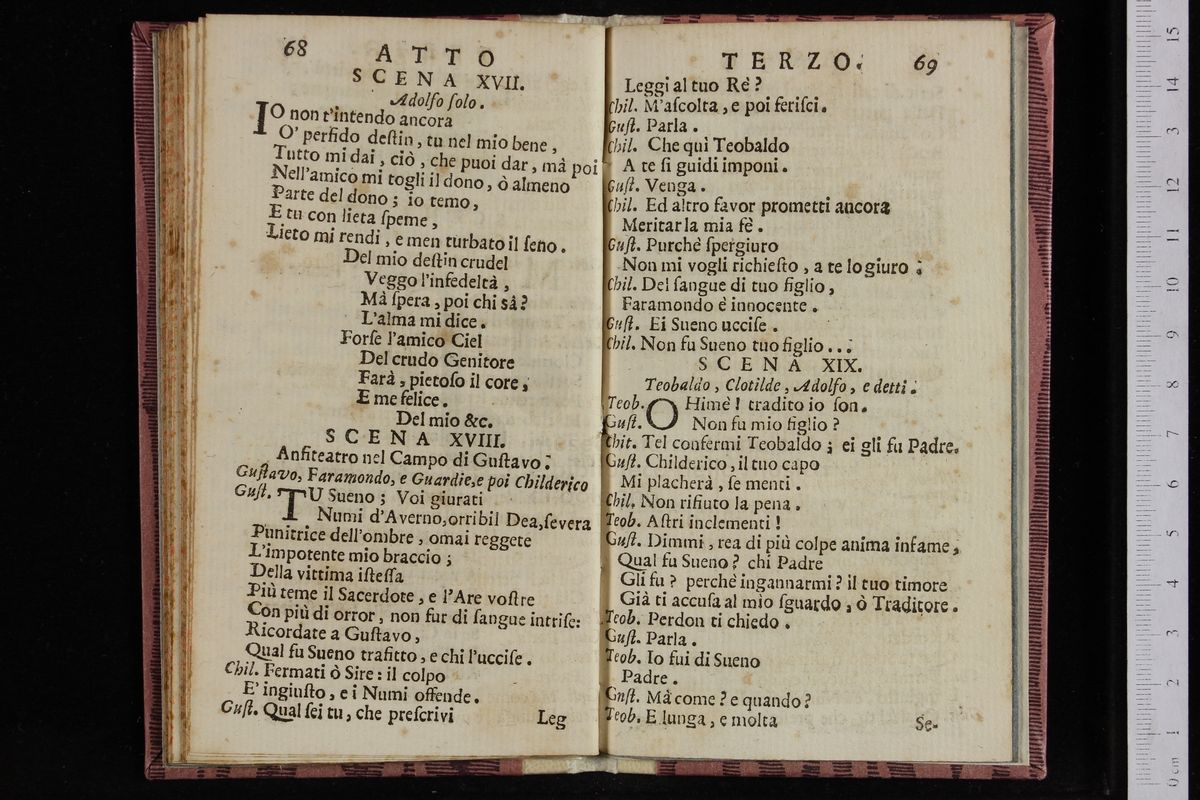 68 ATTO
SCENA XVII.
Adolfo ſolo.
IO non t'intendo ancora
O' perfido deſtin, tu nel mio bene,
Tutto mi dai, ciò, che puoi dar, mà poi
Nell'amico mi togli il dono, ò almeno
Parte del dono; io temo,
E tu con lieta ſpeme,
Lieto mi rendi, e men turbato il ſeno.
Del mio deſtin crudel
Veggo l'infedeltà,
Mà ſpera, poi chi sà?
L'alma mi dice.
Forſe l'amico Ciel
Del crudo Genitore
Farà, pietoſo il core,
E me felice.
Del mio &c.
SCENA XVIII.
Anfiteatro nel Campo di Guſtavo.
Guſtavo, Faramondo, e Guardie,e poi Childerico
Guſt. TU Sueno; Voi giurati
Numi d'Averno,orribil Dea,ſevera
Punitrice dell'ombre, omai reggete
L'impotente mio braccio;
Della vittima iſteſſa
Più teme il Sacerdote, e l'Are voſtre
Con più di orror, non fur di ſangue intriſe:
Ricordate a Guſtavo,
Qual fu Sueno trafitto, e chi l'ucciſe.
Chil. Fermati ò Sire: il colpo
E' ingiuſto, e i Numi offende.
Guſt. Qual ſei tu, che preſcrivi
Leg
TERZO. 69
Leggi al tuo Rè?
Chil. M'aſcolta, e poi feriſci.
Guſt. Parla.
Chil. Che quì Teobaldo
A te ſi guidi imponi.
Guſt. Venga.
Chil. Ed altro favor prometti ancora
Meritar la mia fè.
Guſt. Purchè ſpergiuro
Non mi vogli richieſto, a te lo giuro.
Chil. Del ſangue di tuo figlio,
Faramondo è innocente.
Guſt. Ei Sueno ucciſe.
Chil. Non fu Sueno tuo figlio...
SCENA XIX.
Teobaldo, Clotilde, Adolfo, e detti.
Teob. OHimè! tradito io ſon.
Guſt. Non fu mio figlio?
Chit. Tel confermi Teobaldo; ei gli fu Padre.
Guſt. Childerico, il tuo capo
Mi placherà, ſe menti.
Chil. Non rifiuto la pena.
Teob. Aſtri inclementi!
Guſt. Dimmi, rea di più colpe anima infame,
Qual fu Sueno? chi Padre
Gli fu? perchè ingannarmi? il tuo timore
Già ti accuſa al mio ſguardo, ò Traditore.
Teob. Perdon ti chiedo.
Guſt. Parla.
Teob. Io fui di Sueno
Padre.
Gnſt. Mà come? e quando?
Teob. E lunga, e molta
Se-
0 cm 1 2 3 4 5 6 7 8 9 10 11 12 13 14 15